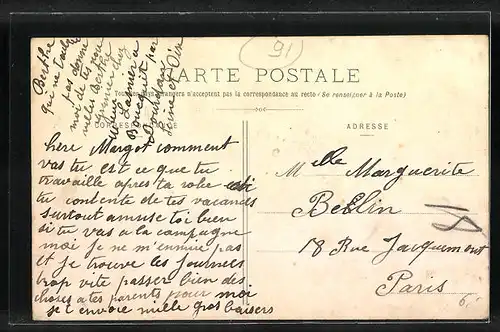 91
CARTE POSTALE
Tous les pays étrangers n'acceptent pas la correspondance au recto (Se renseigner à la Poste)
CORRESPONDANCE
ADRESSE
Berthe
qui ne
pas donne
moi de tes nou
velles Berthe
chez
Lanier a
par
Dourdan
Seine et Oise
chere Margot comment
vas tu est ce que tu
travaille apres ta robe
tu contente de tes vacances
surtout amuse toi bien
si tu vas a la campagne
moi je ne m'ennuie pas
et je trouve les journees
trop vite passer bien des
choses a tes parents pour moi
je t envoie mille gros baisers
Melle Marguerite
Bellin
18 Rue Jacquemont
18
Paris
6